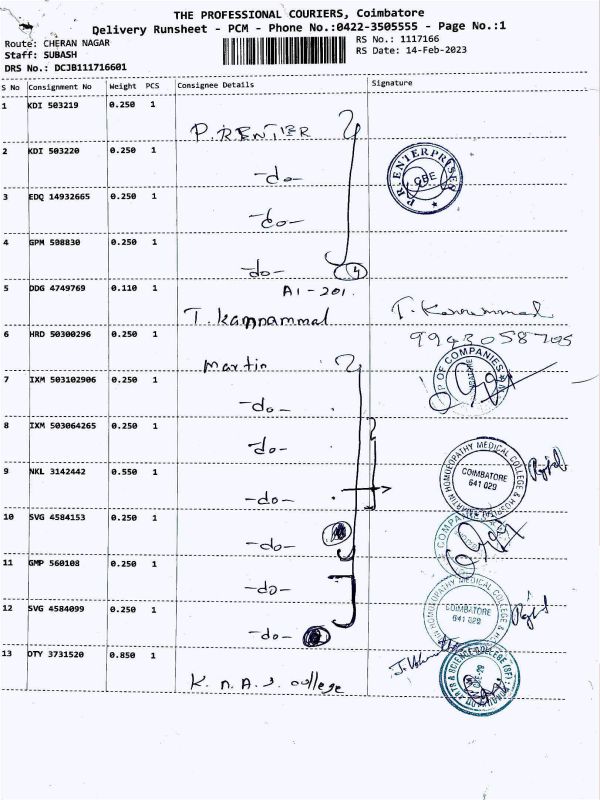 THE PROFESSIONAL COURIERS, Coimbatore
Delivery Runsheet - PCM - Phone No.:0422-3505555 - Page No.:1
Route: CHERAN NAGAR
RS No.: 1117166
Staff: SUBASH
RS Date: 14-Feb-2023
DRS No.: DCJB111716601
S No Consignment No Weight PCS Consignee Details Signature
1 KDI 503219 0.250 1
P.RENTIER
2 KDI 503220 0.250 1
-do-
P.R.ENTERPRISES
CBE
3 EDQ 14932665 0.250 1
-do-
4 GPM 508830 0.250 1
-do- 4
5 DDG 4749769 0.110 1
A1-201.
T. Kannammal T. Kannammal
6 HRD 50300296 0.250 1
9943058705
Martin
7 IXM 503102906 0.250 1
-do-
OF COMPANIES
8 IXM 503064265 0.250 1
-do-
9 NKL 3142442 0.550 1
-do-
MARTIN HOMOEOPATHY MEDICAL COLLEGE & HOSPITAL
COIMBATORE
641 029
10 SVG 4584153 0.250 1
-do-
11 GMP 560108 0.250 1
-do-
12 SVG 4584099 0.250 1
-do-
HOMOEOPATHY MEDICAL COLLEGE &
COIMBATORE
641 029
13 DTY 3731520 0.850 1
K. n. A. S. college
ARTS & SCIENCE COLLEGE (SF)